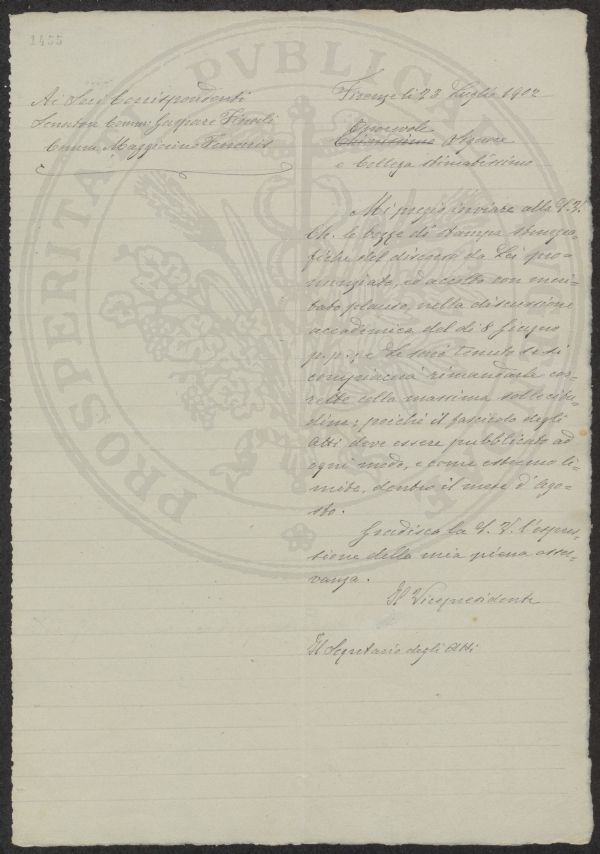 1455
Ai Soci Corrispondenti
Senatore Comm: Gaspare Finali
Comm. Maggiorino Ferraris
Firenze li 23 Luglio 1902
Onorevole
Chiarissimo Signore
e Collega stimabissimo
Mi pregio inviare alla S.V.
Ch. le bozze di stampa stenogra-
fiche del discorso da Lei pro-
nunziato, ed accolto con meri-
tato plauso, nella discussione
accademica del dì 8 Giugno
p.p.; e Le sarò tenuto se si
compiacerà rimandarle cor-
rette colla massima sollecitu-
dine; poiché il fascicolo degli
Atti deve essere pubblicato ad
ogni modo, e come estremo li-
mite, dentro il mese d'Ago-
sto.
Gradisca la S. V. l'espres-
sione della mia piena osser-
vanza.
Il Vicepresidente
Il Segretario degli Atti
PROSPERITA PVBLICAE